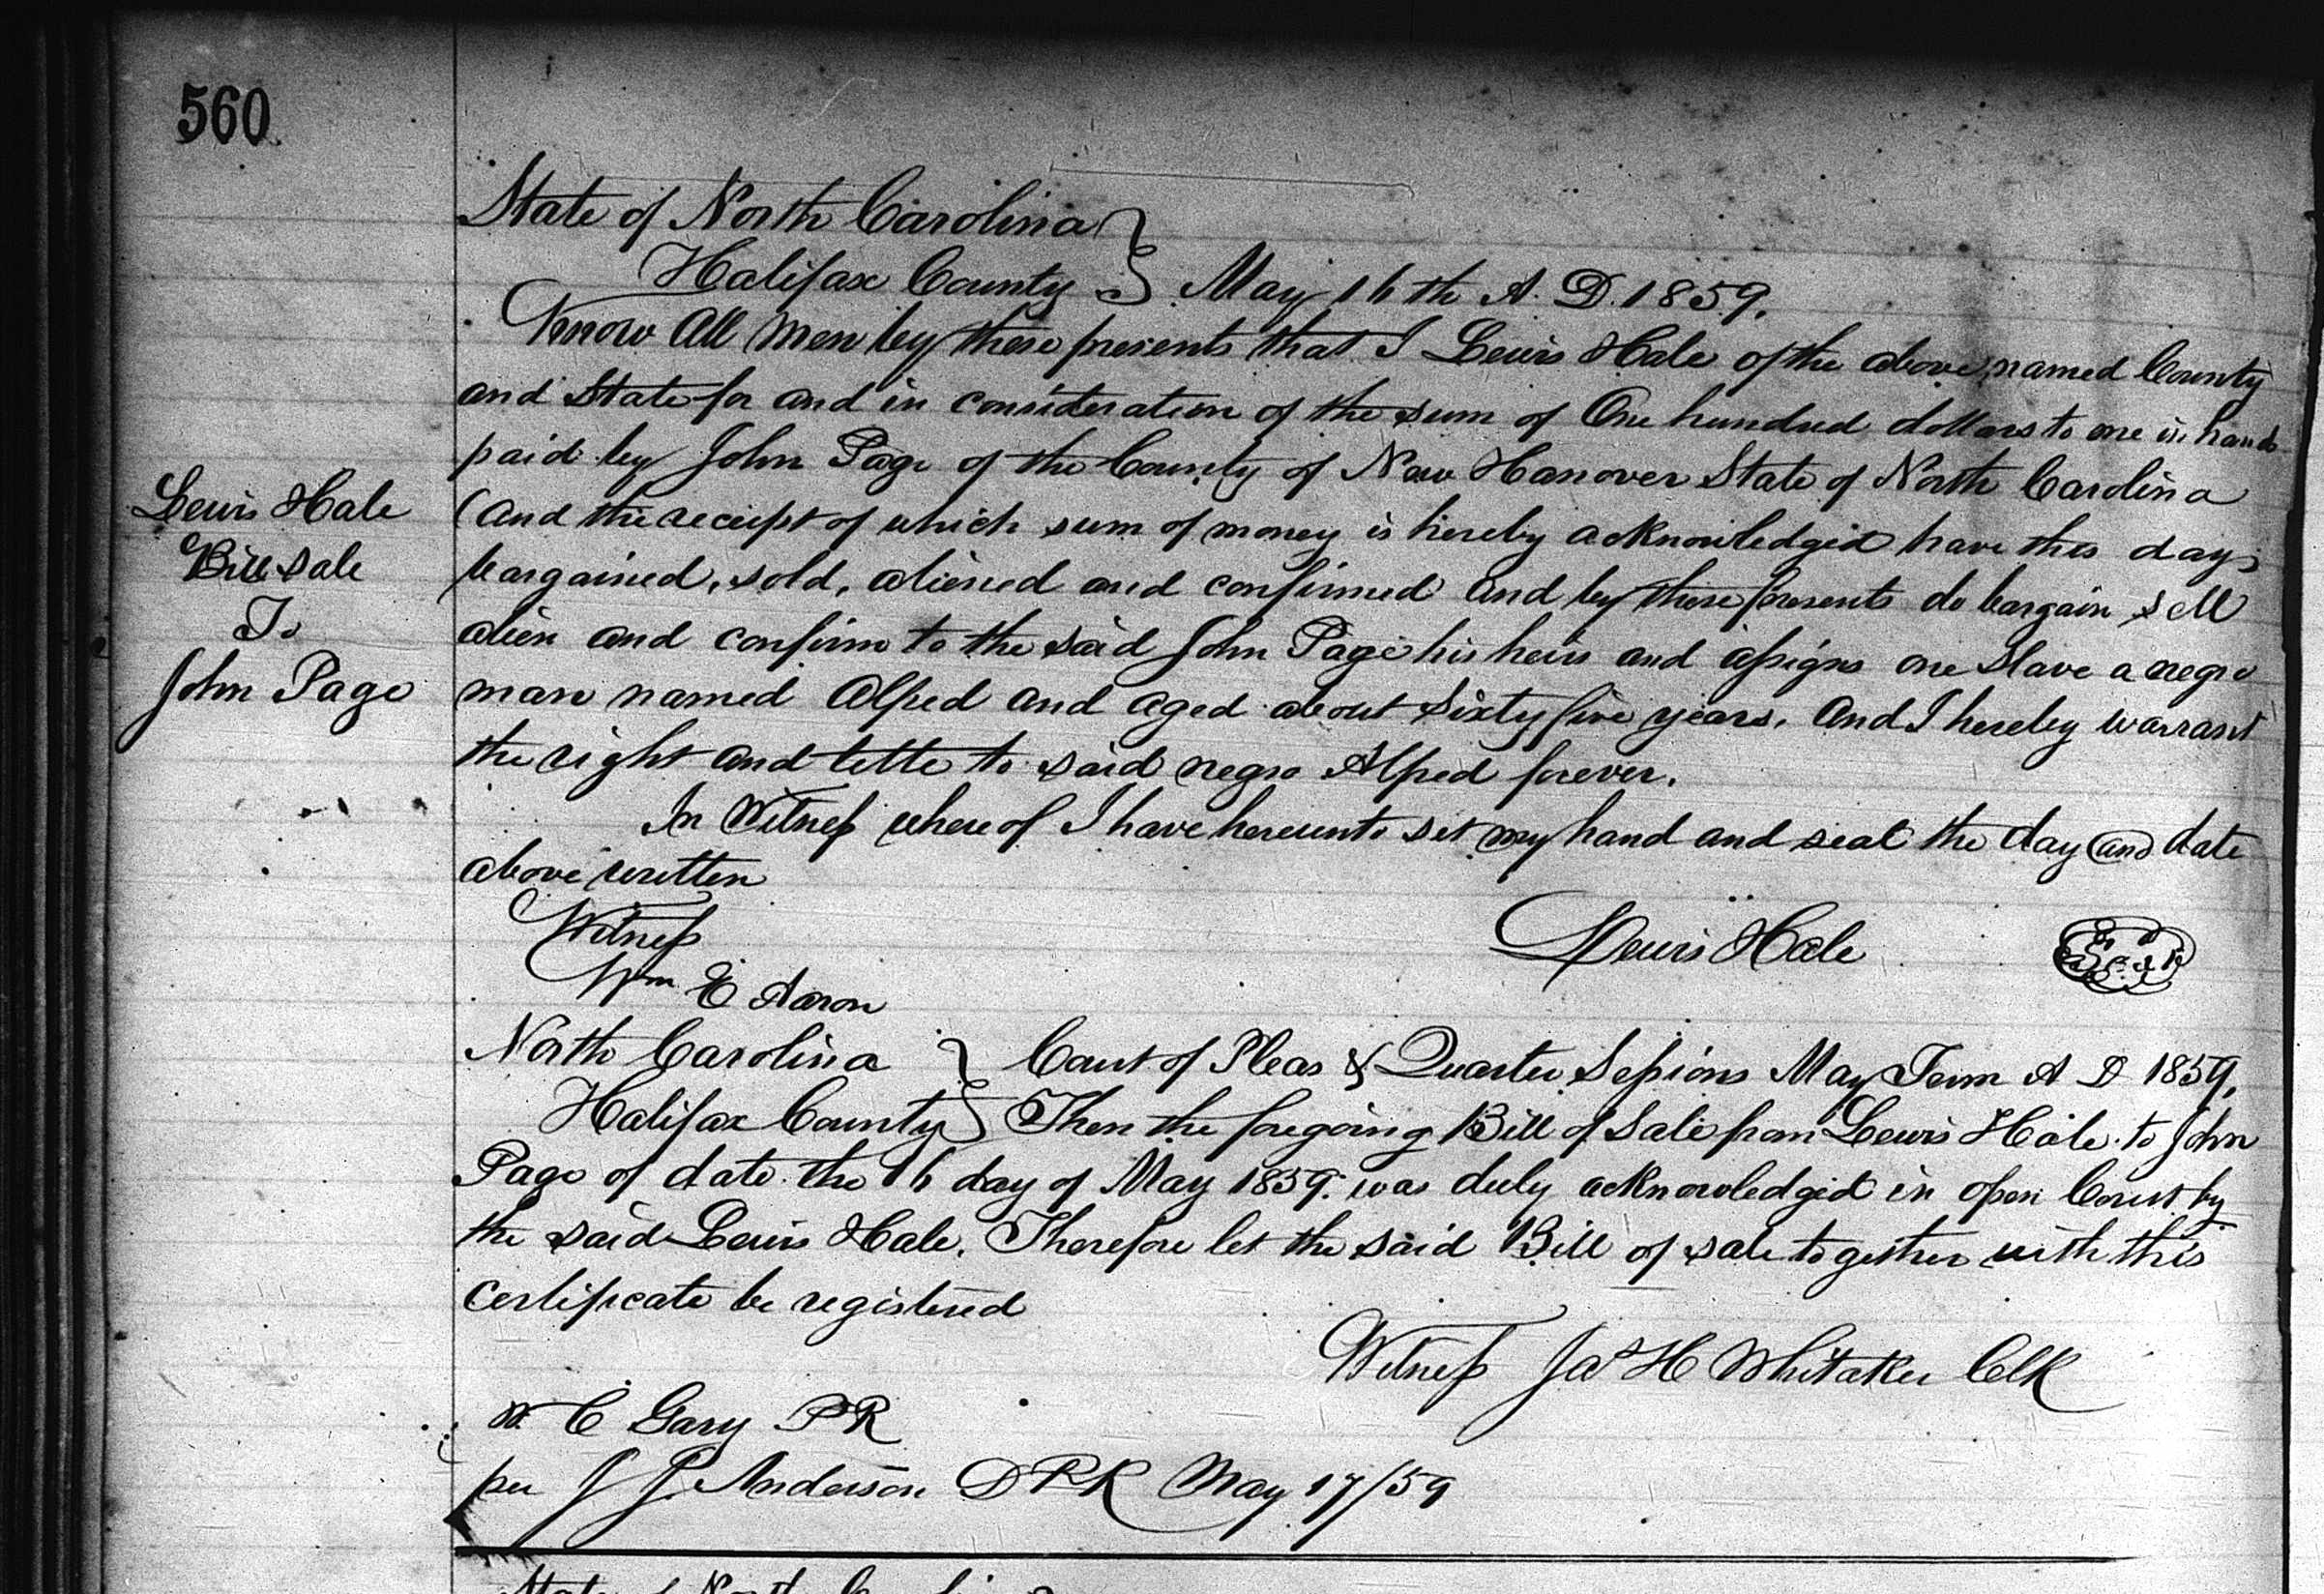 560
State of North Carolina }
Halifax County } May 16th A. D. 1859.
Know All Men by these presents that I Lewis Hale of the above named County
and State for and in consideration of the sum of One hundred dollars to me in hand
paid by John Page of the County of New Hanover State of North Carolina
(and the receipt of which sum of money is hereby acknowledged have this day
bargained, sold, aliened and confirmed and by these presents do bargain sell
alien and confirm to the said John Page his heirs and assigns one Slave a negro
man named Alfred and aged about Sixty five years. And I hereby warrant
the right and title to said negro Alfred forever.
In Witness whereof I have hereunto set my hand and seal the day and date
above written
Witness
Lewis Hale Seal
Wm E Aaron
Lewis Hale
Bill Sale
To
John Page
North Carolina } Court of Pleas & Quarter Sessions May Term A D 1859.
Halifax County } Then the foregoing Bill of Sale from Lewis Hale to John
Page of date the 16 day of May 1859. was duly acknowledged in open Court by
the said Lewis Hale. Therefore let the said Bill of sale together with this
certificate be registered
Witness Jas H Whitaker Clk
C Gary PR
per J J Anderson DPR May 17/59
State of North Carolina